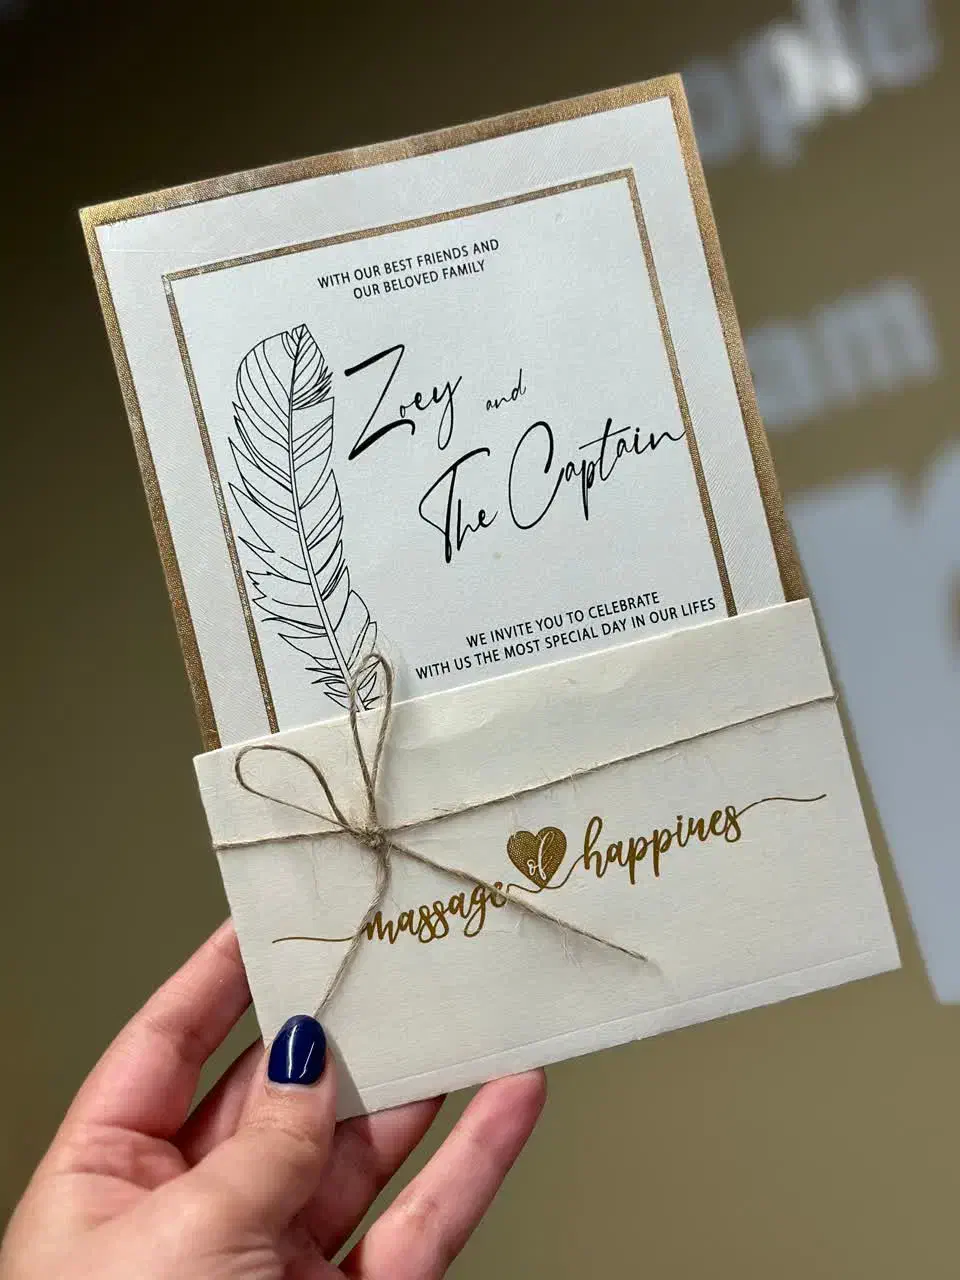 WITH OUR BEST FRIENDS AND
OUR BELOVED FAMILY
Zoey and
The Captain
WE INVITE YOU TO CELEBRATE
WITH US THE MOST SPECIAL DAY IN OUR LIFES
massage of happines